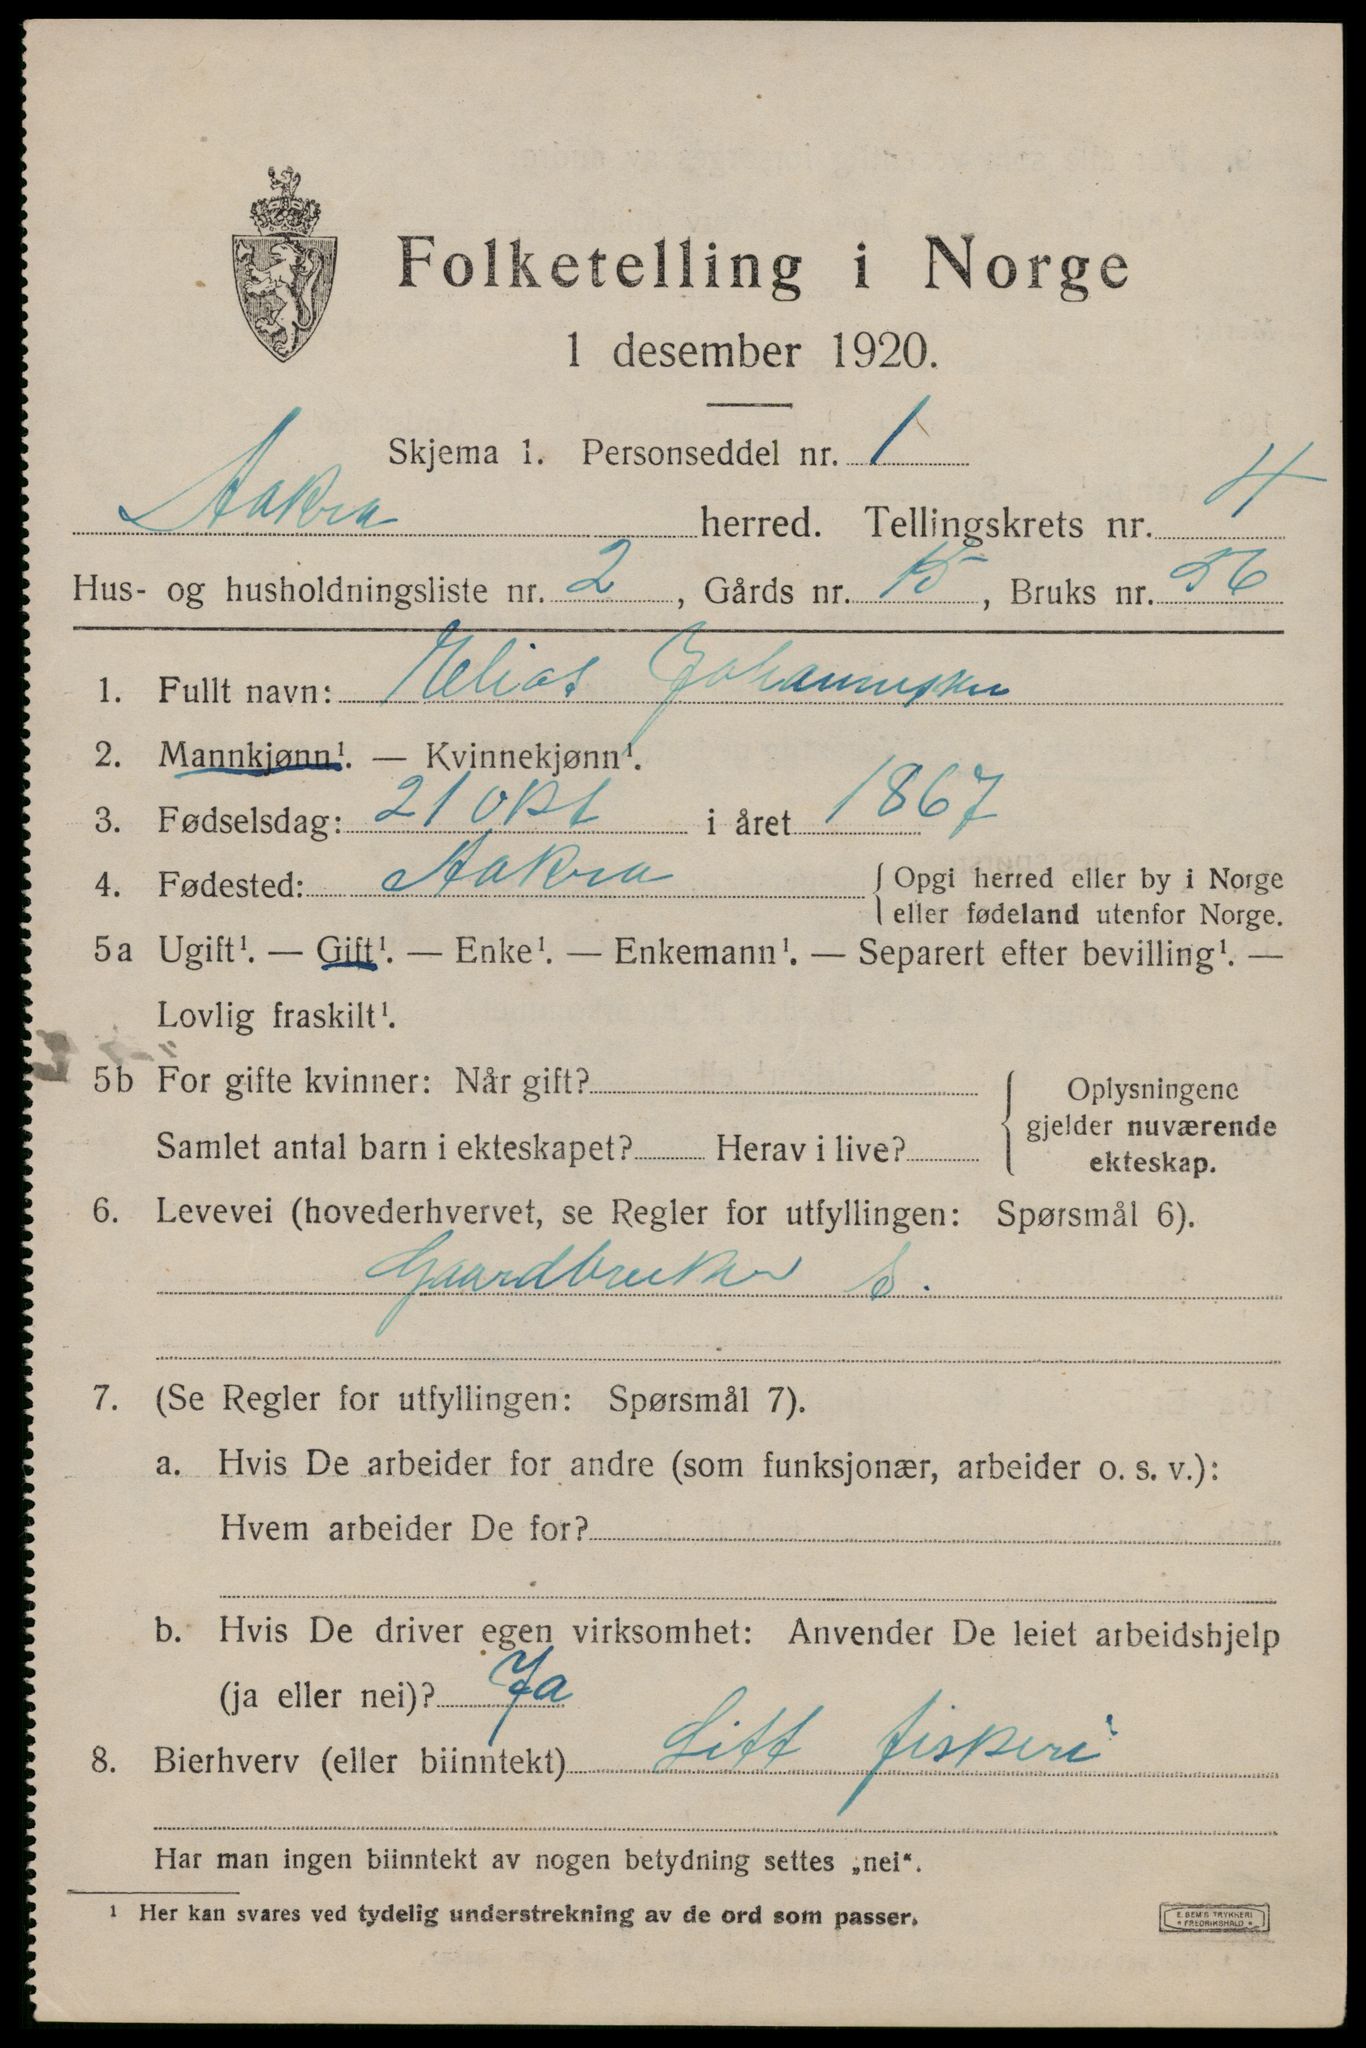 Folketelling i Norge
1 desember 1920.
Skjema 1. Personseddel nr. 1
Aakra herred. Tellingskrets nr. 4
Hus- og husholdningsliste nr. 2, Gårds nr. 15, Bruks nr. 56
1. Fullt navn: Elias Johannesen
2. Mannkjønn¹. — Kvinnekjønn¹.
3. Fødselsdag: 21 okt i året 1867
4. Fødested: Aakra { Opgi herred eller by i Norge
eller fødeland utenfor Norge.
5a Ugift¹. — Gift¹. — Enke¹. — Enkemann¹. — Separert efter bevilling¹. —
Lovlig fraskilt¹.
5b For gifte kvinner: Når gift? { Oplysningene
gjelder nuværende
Samlet antal barn i ekteskapet? Herav i live? ekteskap.
6. Levevei (hovederhvervet, se Regler for utfyllingen: Spørsmål 6).
Gaardbruker S.
7. (Se Regler for utfyllingen: Spørsmål 7).
a. Hvis De arbeider for andre (som funksjonær, arbeider o. s. v.):
Hvem arbeider De for?
b. Hvis De driver egen virksomhet: Anvender De leiet arbeidshjelp
(ja eller nei)? Ja
8. Bierhverv (eller biinntekt) Litt fiskeri
Har man ingen biinntekt av nogen betydning settes „nei“.
¹ Her kan svares ved tydelig understrekning av de ord som passer.
E. SEM'S TRYKKERI
* FREDRIKSHALD *